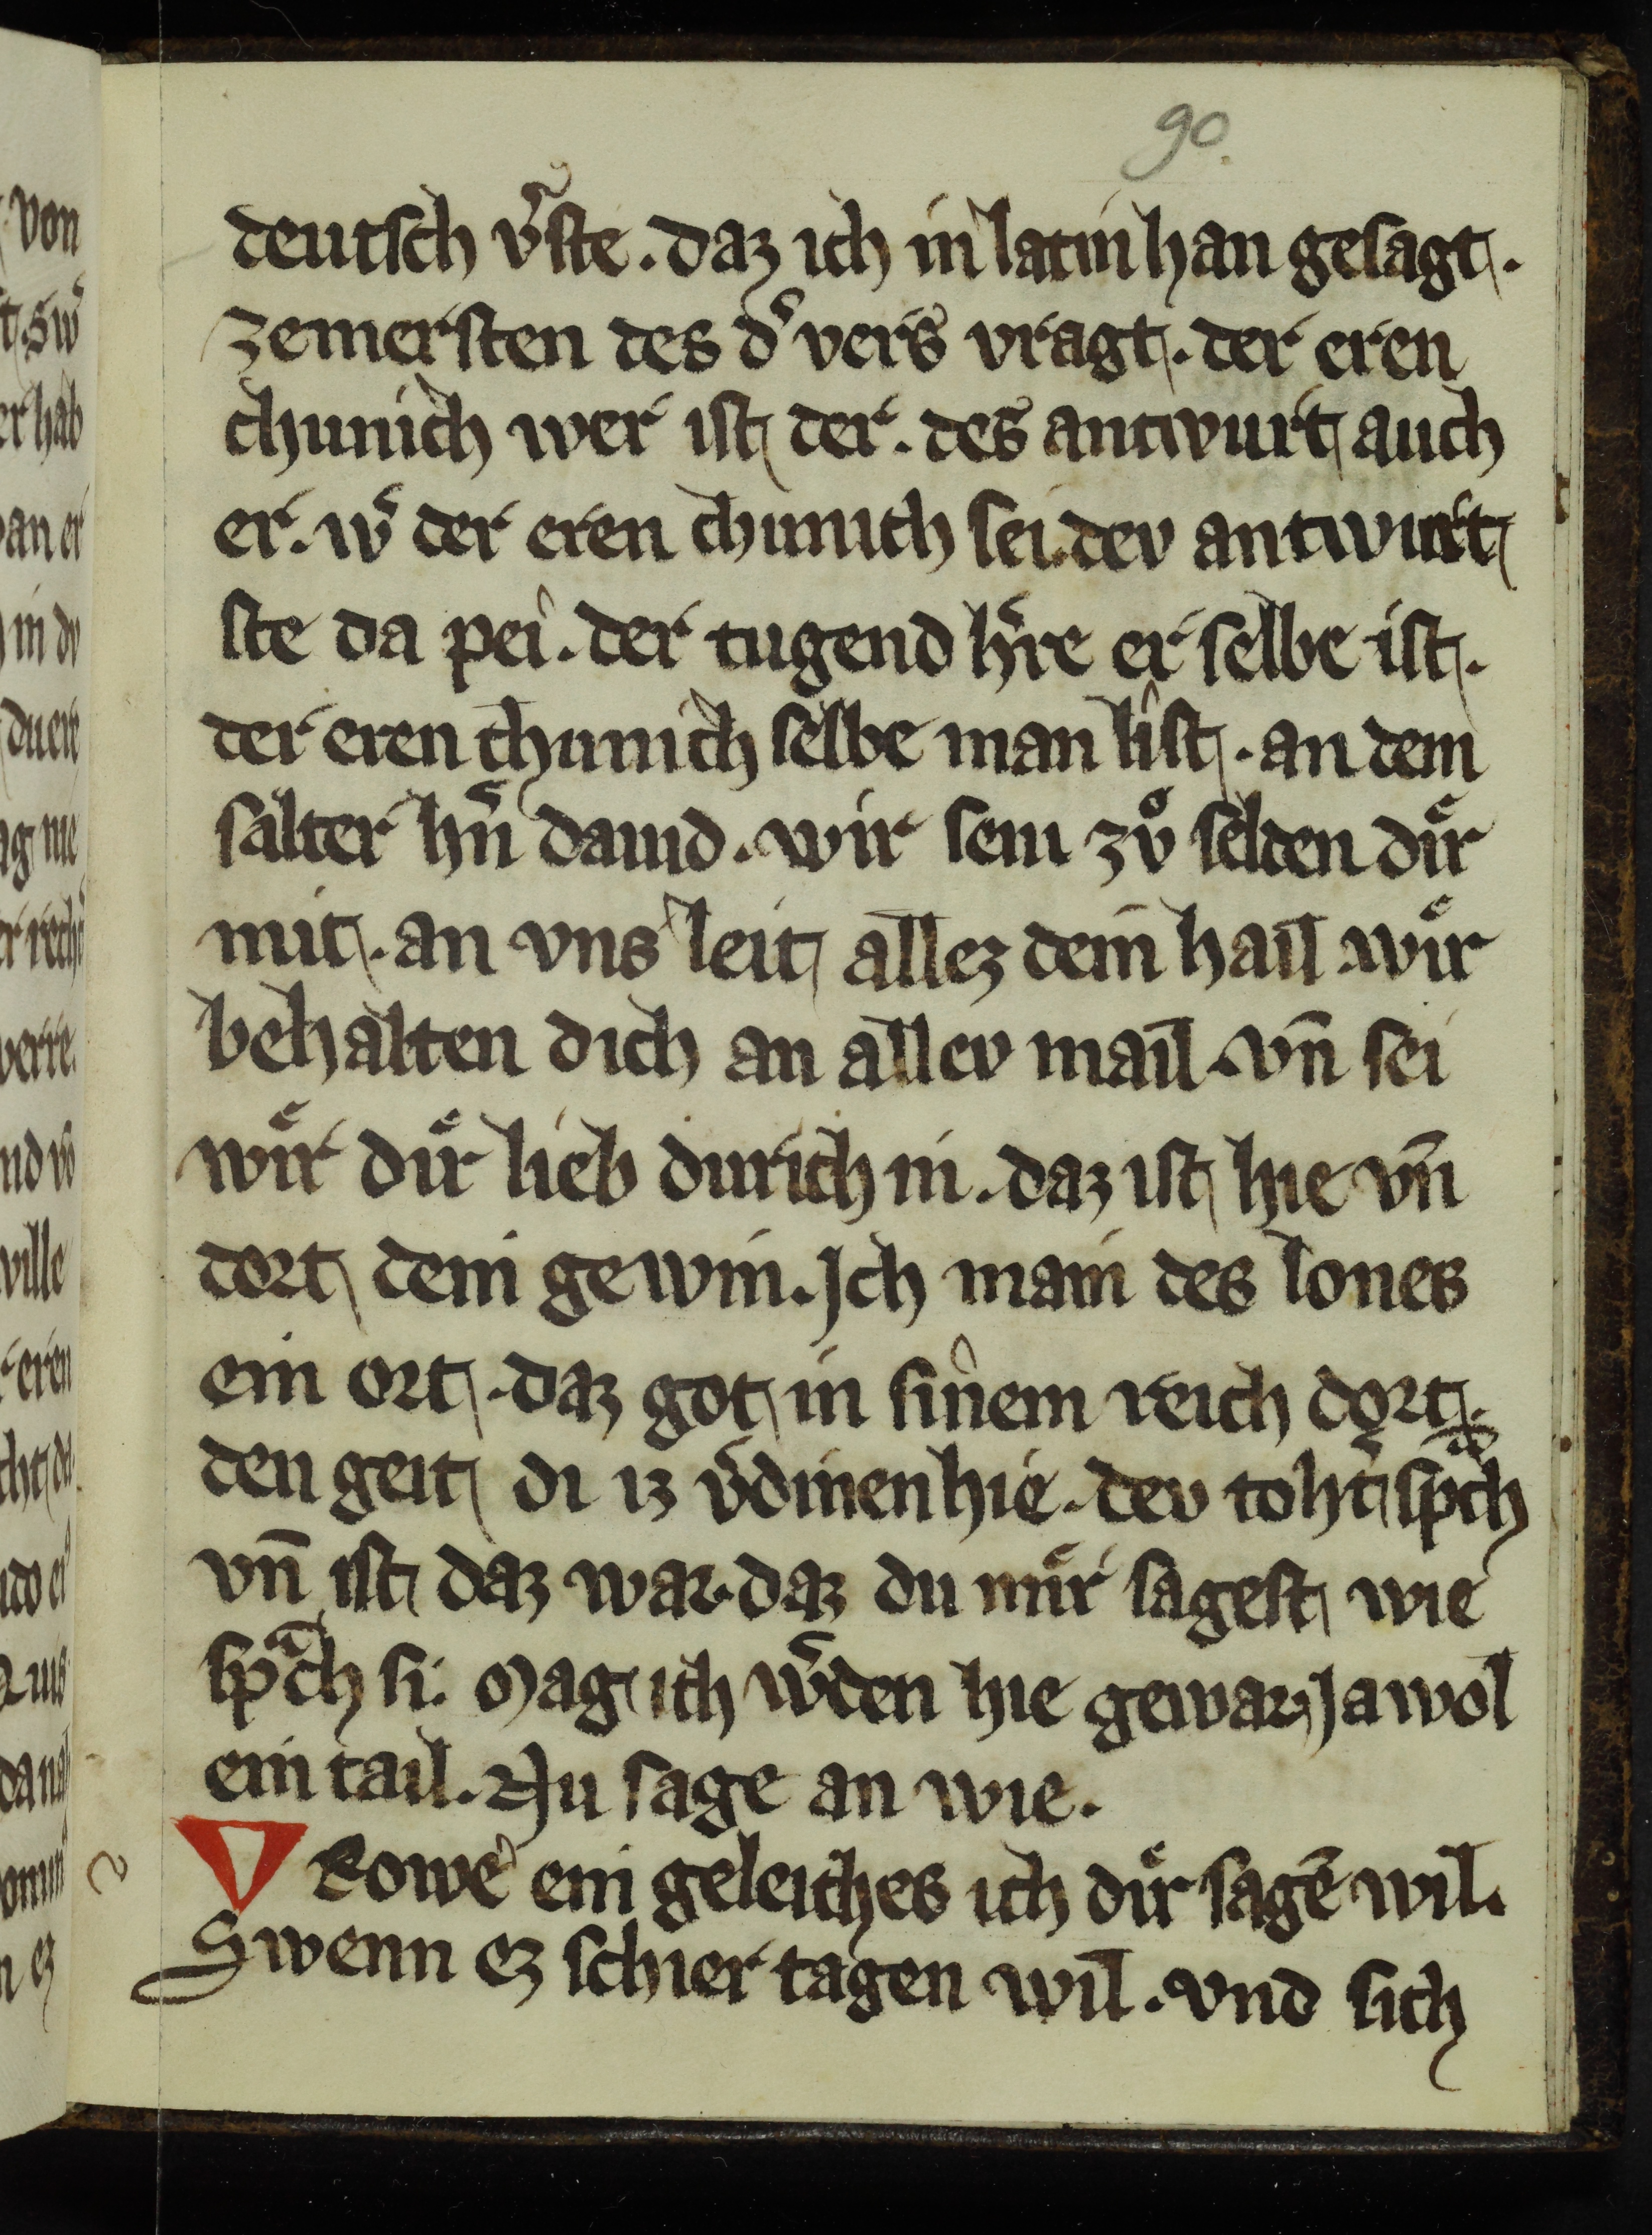 90.
deutsch v̾ste . daz ich in latin han gesagt .
zem ersten des d̾ vers vragt . der eren
chunich wer ist der . des antwurt auch
er . w̾ der eren chunich sei . dev antwurt
ste da pei . der tugend h̾re er selbe ist .
der eren chunich selbe man list . an dem
salter hn̄ dauid . wir sein zuͦ selden duͤr
mit . an vns leit allez dein hail . wuͤr
behalten dich an allev mail . vn̄ sei
wuͤr duͤr lieb durich in . daz ist hie vn̄
dort dein gewin . Jch main des lones
ein ort . daz got in sinem reich dort .
den geit di iz v̾dinen hie . dev toht̾ spͣch
vn̄ ist daz war . daz du muͤr sagest wie
spͣch si . Mag ich w̾den hie gewar . Ja wol
ein tail . Nu sage an wie .
VRowe ein geleiches ich duͤr sagē wil .
Swenn ez schier tagen wil . vnd sich